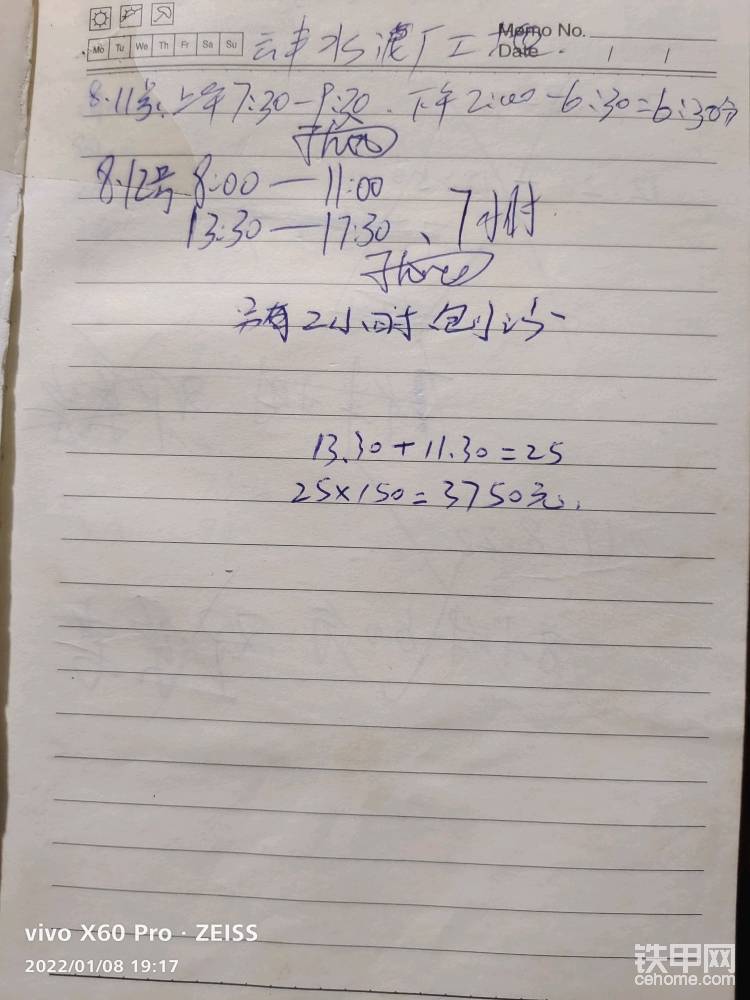 Memo No.
Mo Tu We Th Fr Sa Su
Date / /
水滤厂工
8.11号、上午7:30-9:30、下午2:00-6:30=6:30分
8.12号 8:00—11:00
13:30—17:30、7小时
另有2小时包小
13.30+11.30=25
25×150=3750元.
vivo X60 Pro · ZEISS
2022/01/08 19:17
铁甲网
cehome.com